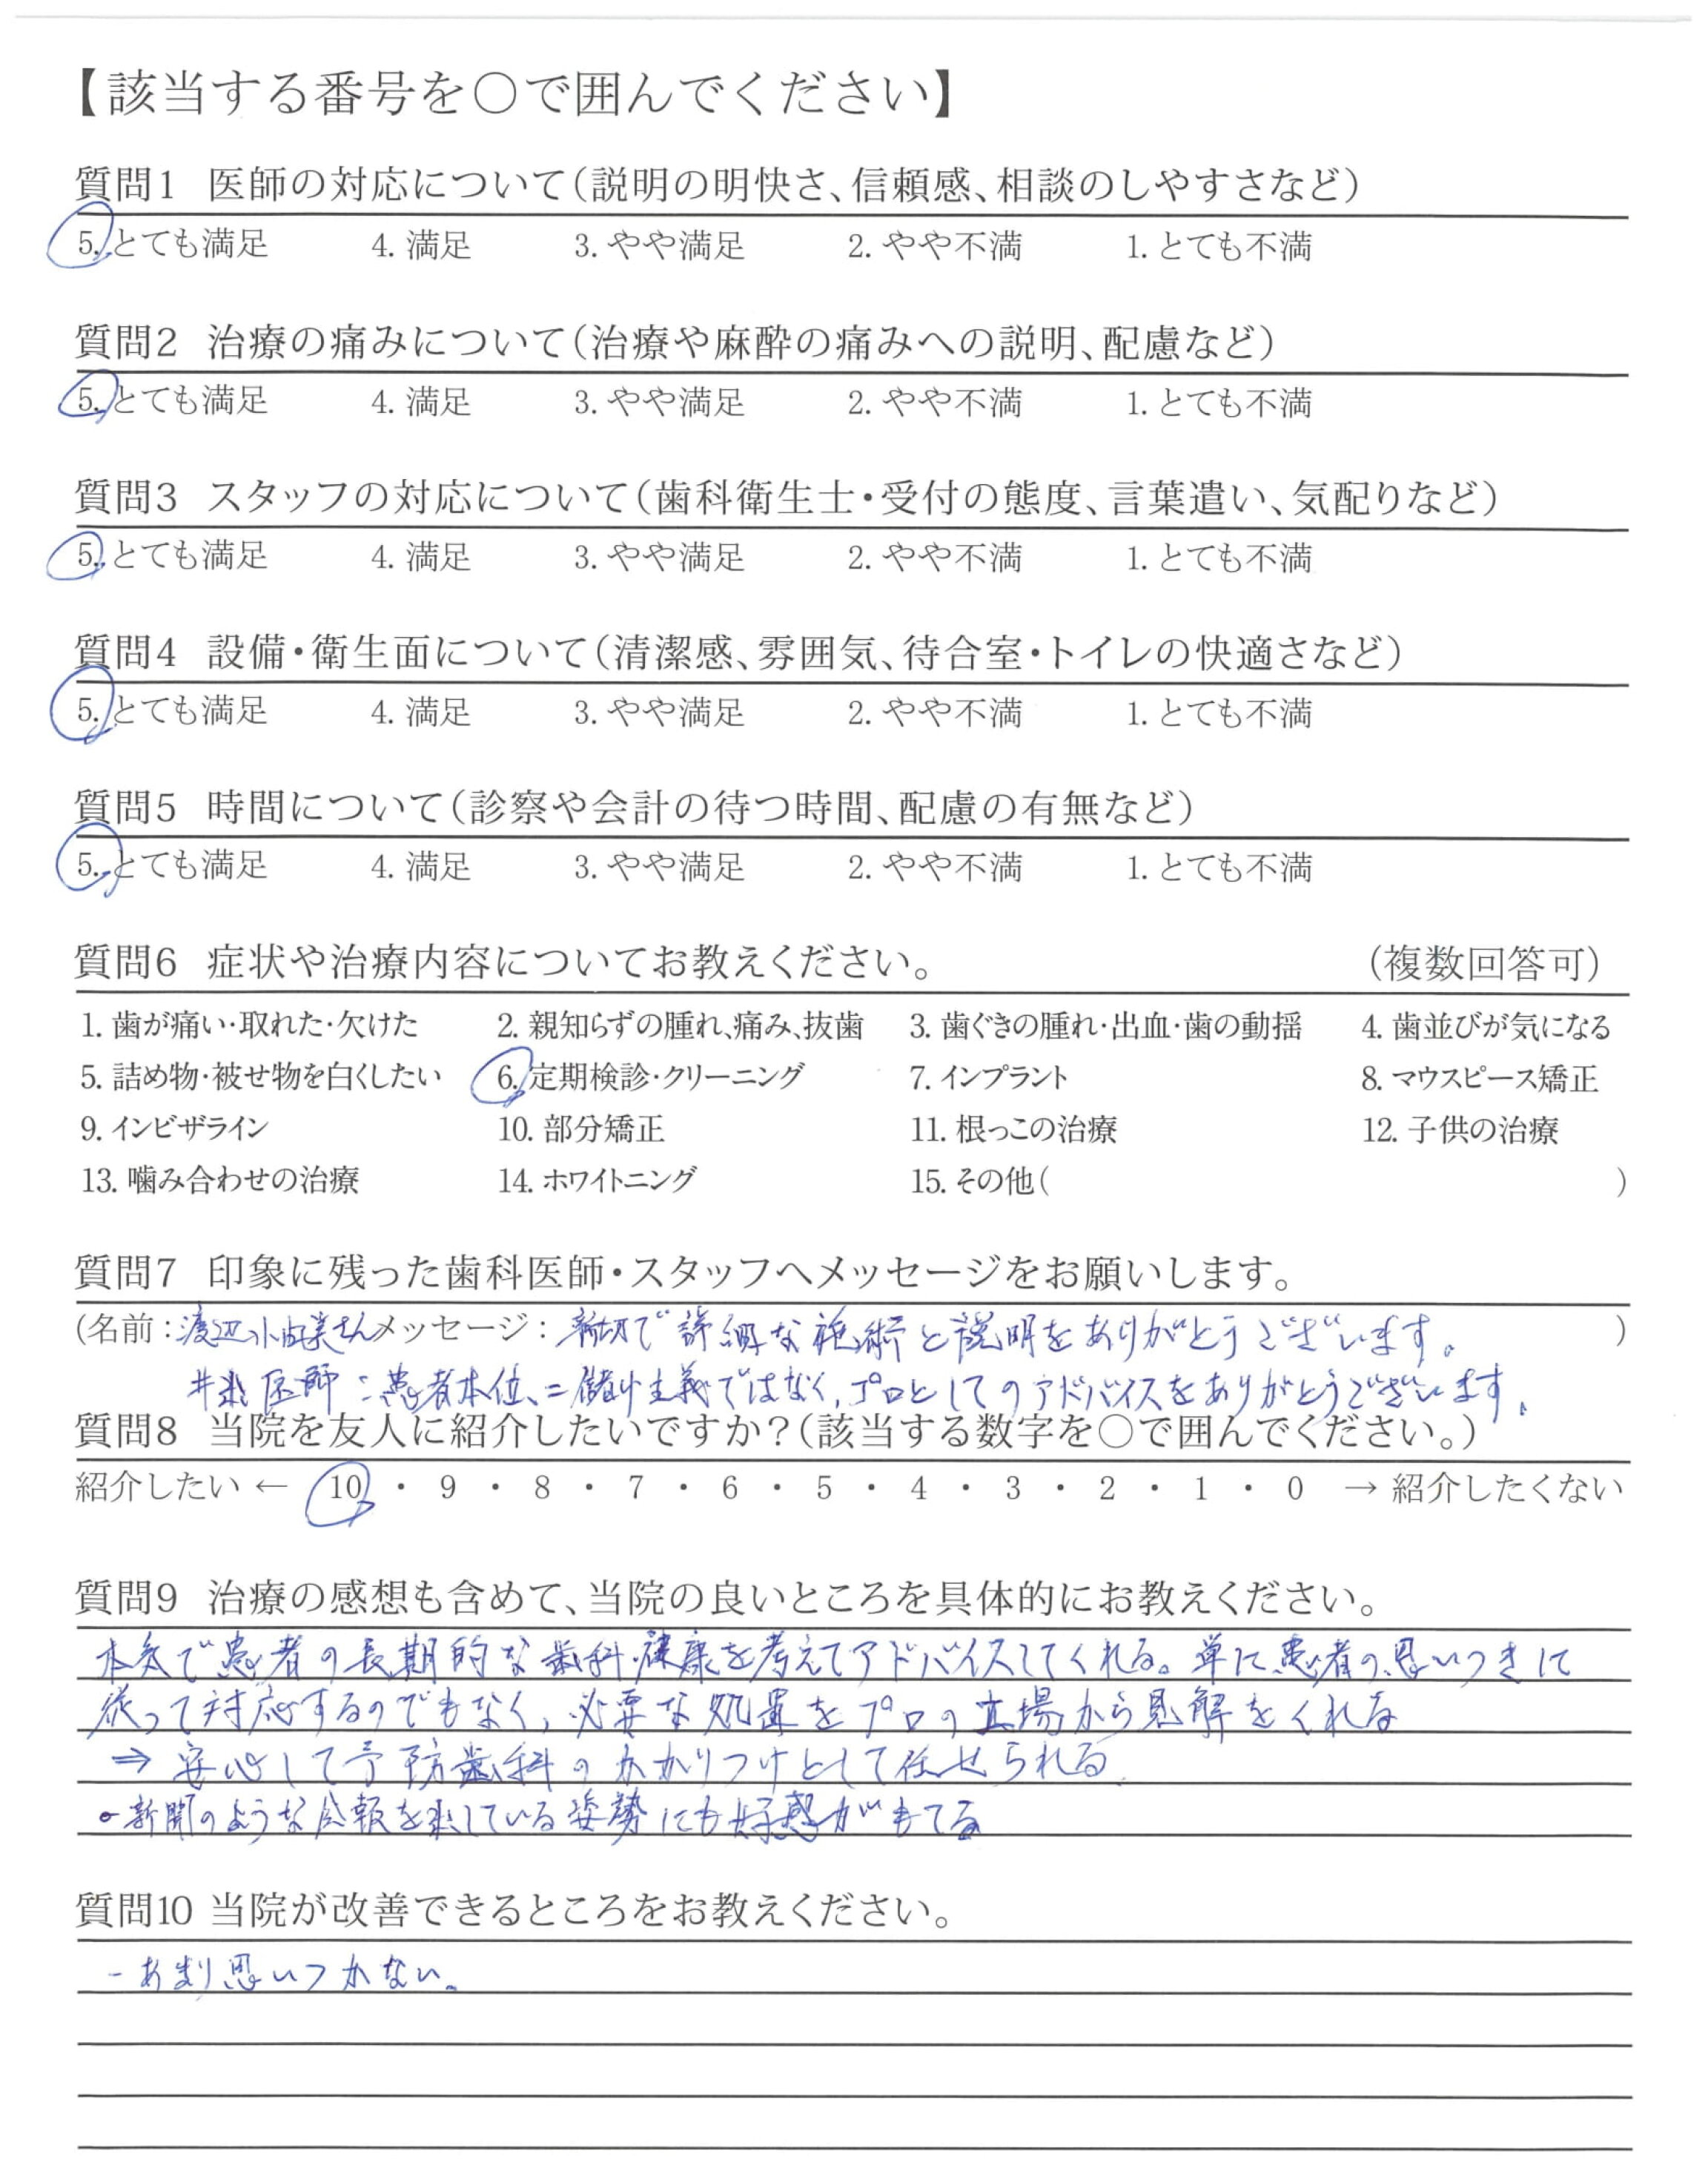 【該当する番号を〇で囲んでください】
質問1 医師の対応について(説明の明快さ、信頼感、相談のしやすさなど)
5. とても満足 4. 満足 3. やや満足 2. やや不満 1. とても不満
質問2 治療の痛みについて(治療や麻酔の痛みへの説明、配慮など)
5. とても満足 4. 満足 3. やや満足 2. やや不満 1. とても不満
質問3 スタッフの対応について(歯科衛生士・受付の態度、言葉遣い、気配りなど)
5. とても満足 4. 満足 3. やや満足 2. やや不満 1. とても不満
質問4 設備・衛生面について(清潔感、雰囲気、待合室・トイレの快適さなど)
5. とても満足 4. 満足 3. やや満足 2. やや不満 1. とても不満
質問5 時間について(診察や会計の待つ時間、配慮の有無など)
5. とても満足 4. 満足 3. やや満足 2. やや不満 1. とても不満
質問6 症状や治療内容についてお教えください。 (複数回答可)
1. 歯が痛い・取れた・欠けた 2. 親知らずの腫れ、痛み、抜歯 3. 歯ぐきの腫れ・出血・歯の動揺 4. 歯並びが気になる
5. 詰め物・被せ物を白くしたい 6. 定期検診・クリーニング 7. インプラント 8. マウスピース矯正
9. インビザライン 10. 部分矯正 11. 根っこの治療 12. 子供の治療
13. 噛み合わせの治療 14. ホワイトニング 15. その他( )
質問7 印象に残った歯科医師・スタッフへメッセージをお願いします。
(名前:渡辺小由美さんメッセージ:親切で詳細な施術と説明をありがとうございます。 )
医師:患者本位、儲け主義ではなく、プロとしてのアドバイスをありがとうございます。
質問8 当院を友人に紹介したいですか?(該当する数字を〇で囲んでください。)
紹介したい ← 10 ・ 9 ・ 8 ・ 7 ・ 6 ・ 5 ・ 4 ・ 3 ・ 2 ・ 1 ・ 0 → 紹介したくない
質問9 治療の感想も含めて、当院の良いところを具体的にお教えください。
本気で患者の長期的な歯科健康を考えてアドバイスしてくれる。単に患者の思いつきに
従って対応するのでもなく、必要な処置をプロの立場から見解をくれる
⇒ 安心して予防歯科のかかりつけとして任せられる
○新聞のような広報を出している姿勢にも好感がもてる
質問10 当院が改善できるところをお教えください。
- あまり思いつかない。